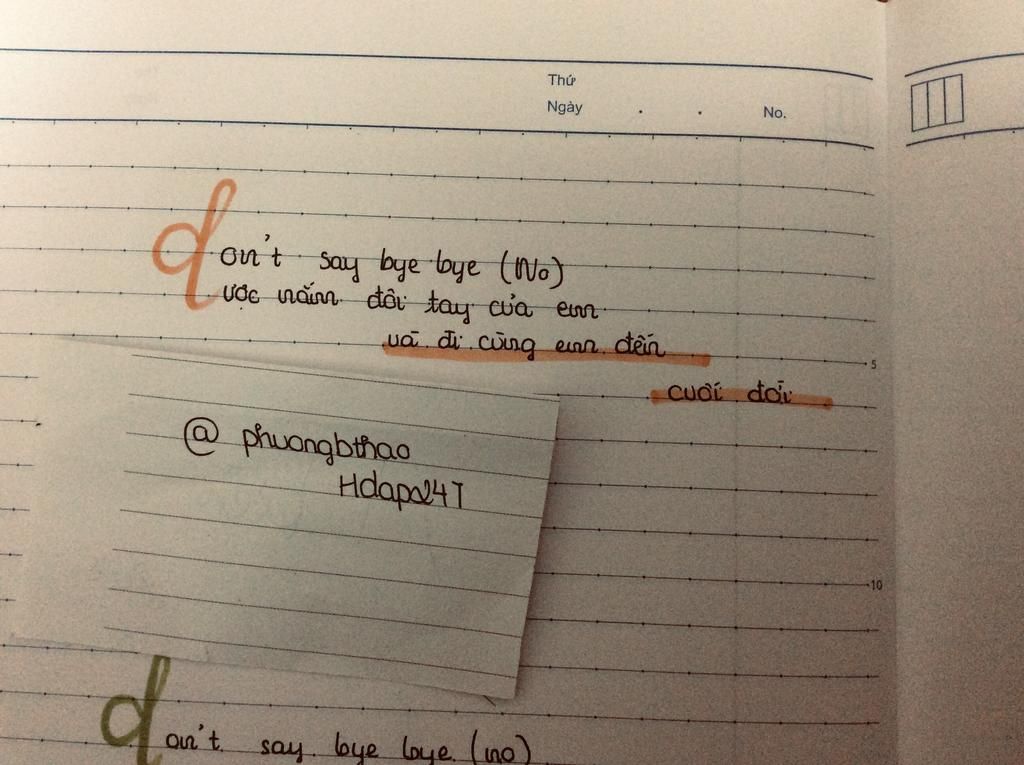 Thứ
Ngày . . No.
don't say bye bye (No)
được nắm đôi tay của em
và đi cùng em đến
5
cuối đời
@ phuongbthao
Hdapa24T
10
don't say bye bye (no)